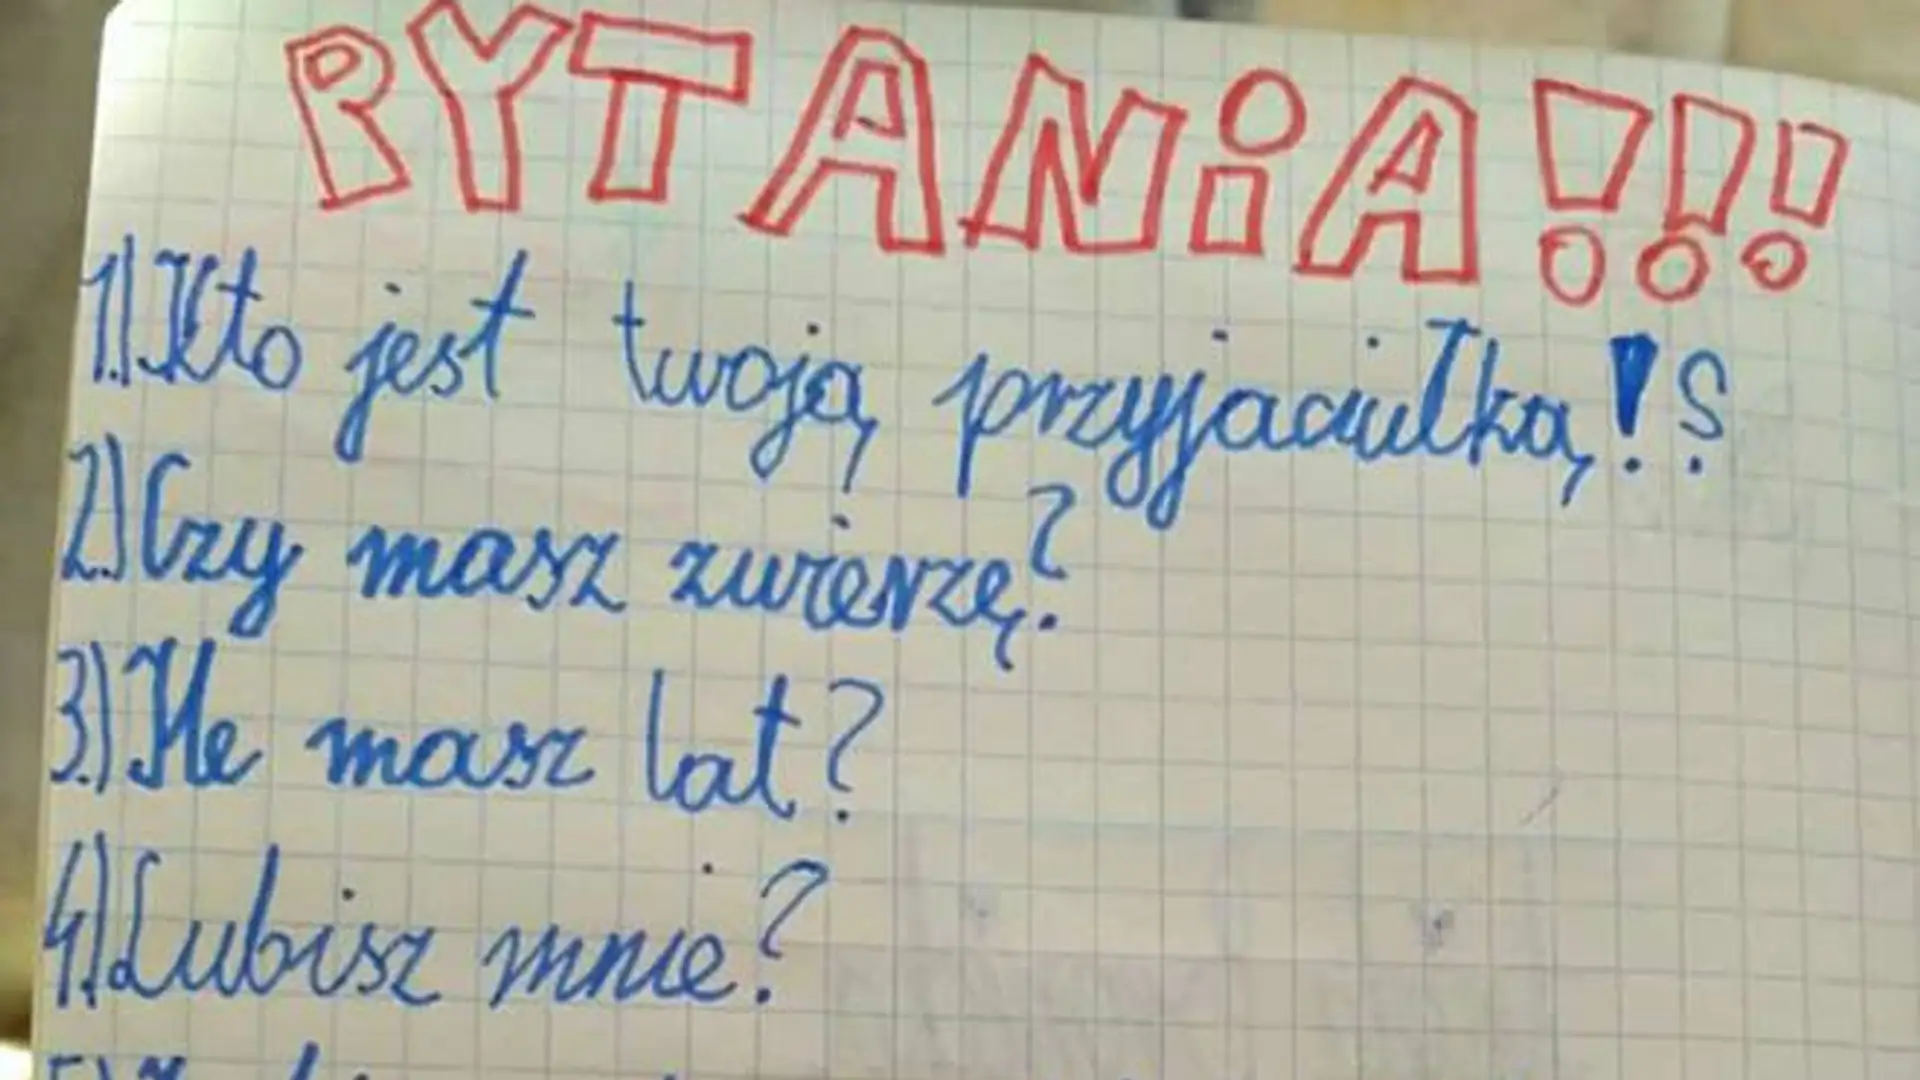 PYTANiA!!!
1.) Kto jest twoją przyjaciułką!?
2.) Czy masz zwierzę?
3.) Ile masz lat?
4.) Lubisz mnie?
5.)